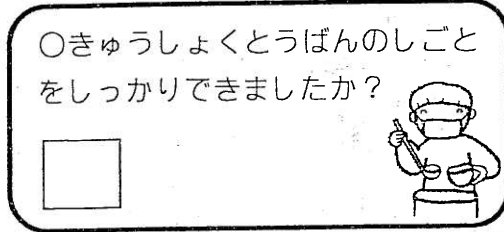 ○きゅうしょくとうばんのしごと
をしっかりできましたか？